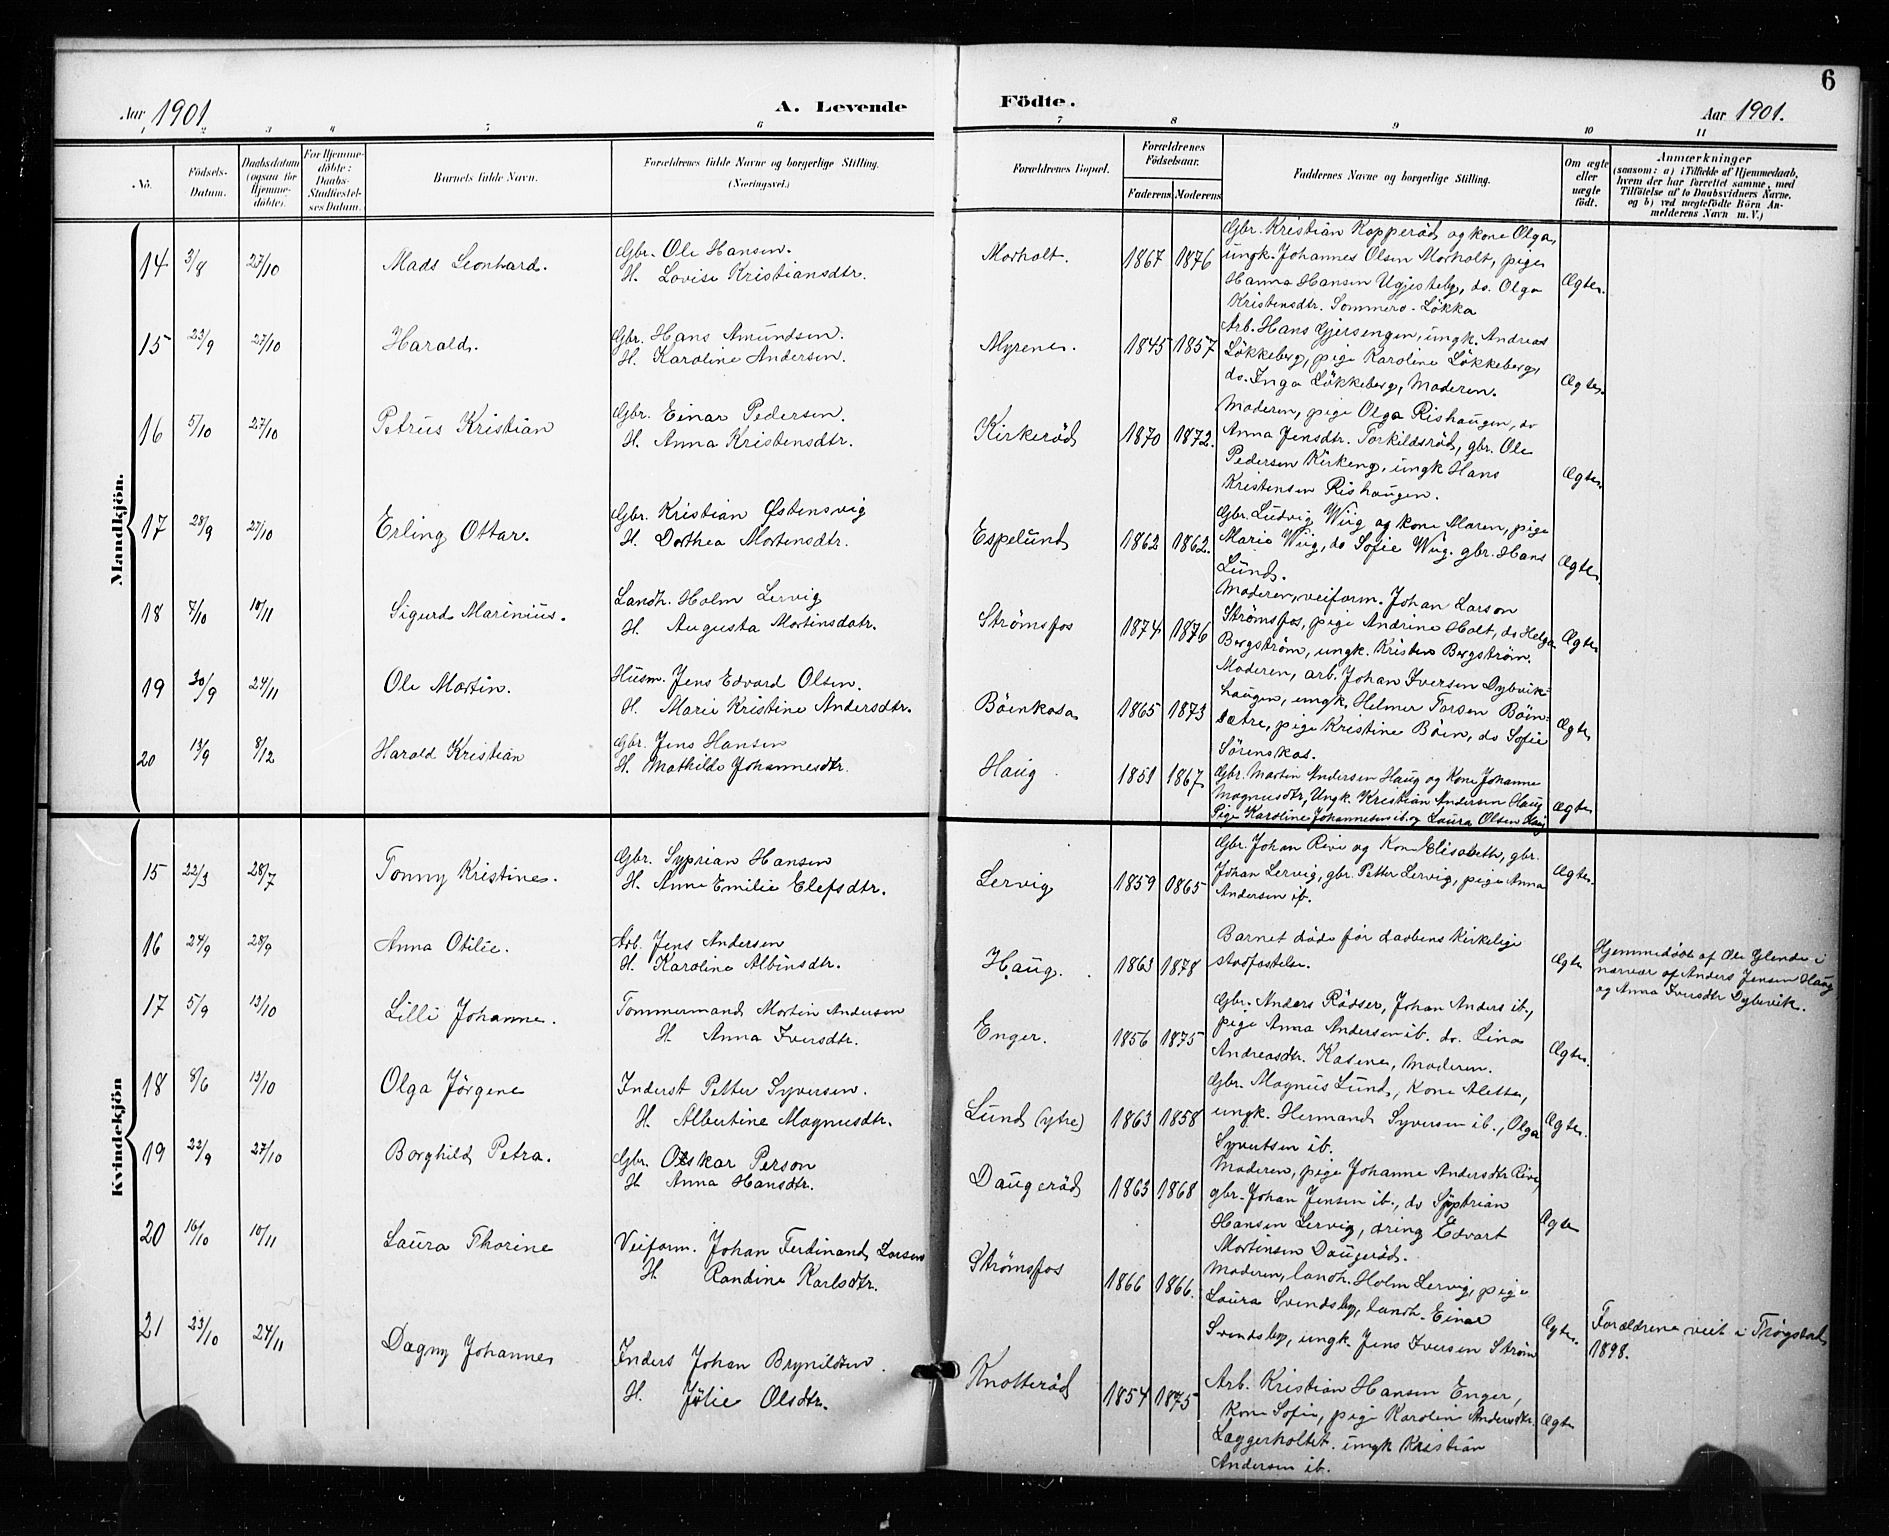 6
Aar 1901. A. Levende Födte. Aar 1901.
1 2 3 4 5 6 7 8 9 10 11
No.
Födsels-Datum.
Daabsdatum (ogsaa for Hjemmedöbte).
For Hjemmedöbte: Daabs-Stadfæstelses Datum.
Barnets fulde Navn.
Forældrenes fulde Navne og borgerlige Stilling. (Næringsvei.)
Forældrenes Bopæl.
Forældrenes Födselsaar.
Faderens Moderens
Faddernes Navne og borgerlige Stilling.
Om ægte eller uægte født.
Anmærkninger
(saasom: a) i Tilfælde af Hjemmedaab,
hvem der har forrettet samme, med
Tilföielse af to Daabsvidners Navne,
og b) ved uægtefödte Börn An-
melderens Navn m. V.)
Mandkjön.
14 3/8 27/10 Mads Leonhard. Gbr. Ole Hansen.
H. Lovise Kristiansdtr.
Morholt. 1867 1876
Gbr. Kristian Kopperöd og kone Olga,
ungk. Johannes Olsen Morholt, pige
Hanna Hansen Ugjesteby, do. Olga
Kristensdtr. Sommero-Lökka
Ægte.
15 23/9 27/10 Harald. Gbr. Hans Amundsen.
H. Karoline Andersen.
Myrene. 1845 1857
Arb. Hans Gjersengen, ungk. Andreas
Lökkeberg, pige Karoline Lökkeberg,
do. Inga Lökkeberg, Moderen.
Ægte.
16 5/10 27/10 Petrus Kristian Gbr. Einar Pedersen.
H. Anna Kristensdtr.
Kirkeröd 1870 1872.
Moderen, pige Olga Rishaugen, do
Anna Jensdtr. Torkildsröd, gbr. Ole
Pedersen Kirkeng, ungk Hans
Kristensen Rishaugen.
Ægte.
17 28/9 27/10 Erling Ottar. Gbr. Kristian Østensvig
H. Dorthea Mortensdtr.
Espelund 1862 1862.
Gbr. Ludvig Wiig og kone Maren, pige
Marie Wiig, do Sofie Wiig. gbr. Hans
Lund.
Ægte.
18 7/10 10/11 Sigurd Marinius. Landh. Holm Lervig
H. Augusta Martinsdatr.
Strømsfos 1874 1876
Moderen, veiform. Johan Larson
Strømsfos, pige Andrine Holt, do Helga
Bergström, ungk. Kristen Bergström.
Ægte
19 30/9 24/11 Ole Martin. Husm. Jens Edvard Olsen.
H. Marie Kristine Andersdtr.
Böenkasa 1865 1873
Moderen, arb. Johan Iversen Dybvik-
haugen, ungk. Helmer Torsen Böen-
sætre, pige Kristine Böen, do Sofie
Sörenskas.
Ægte
20 13/9 8/12 Harald Kristian Gbr. Jens Hansen
H. Mathilde Johannesdtr.
Haug. 1851 1867
Gbr. Martin Andersen Haug og Kone Johanne
Magnusdtr, Ungk. Kristian Andersen Haug
Pige Karoline Johannesen ib. og Laura Olsen Haug
Ægte
Kvindekjön
15 22/3 28/7 Tonny Kristine. Gbr. Syprian Hansen
H. Anne Emilie Elefsdtr.
Lervig 1859 1865
Gbr. Johan Rive og Kone Elisabeth, gbr.
Johan Lervig, gbr. Petter Lervig, pige Anna
Andersen ib.
Ægte.
16 24/9 28/9 Anna Otilie. Arb. Jens Andersen
H. Karoline Albinsdtr.
Haug. 1863 1878
Barnet döde för daabens kirkelige
stadfæstelse.
Ægte
Hjemmedöbt af Ole Glende i
nærvær af Anders Jensen Haug
og Anna Iversdtr Dybevik.
17 5/9 13/10 Lilli Johanne. Tømmermand Martin Andersen
H. Anna Iversdtr.
Enger. 1856 1875
Gbr. Anders Rödser, Johan Anders ib.,
pige Anna Andersen ib. do. Lina
Andreasdtr. Kasene, Moderen.
Ægte.
18 8/6 13/10 Olga Jörgene Inderst Petter Syversen.
H. Albertine Magnusdtr.
Lund (ytre) 1863 1858
Gbr. Magnus Lund, Kone Alette,
ungk. Hermand Syversen ib., Olga
Syvertsen ib.
Ægte.
19 22/9 27/10 Borghild Petra. Gbr. Oskar Person
H. Anna Hansdtr.
Daugeröd 1863 1868
Moderen, pige Johanne Andersdtr Rive,
gbr. Johan Jensen ib., do Syprian
Hansen Lervig, dreng Edvart
Mortinsen Daugeröd.
Ægte
20 16/10 10/11 Laura Thorine Veiform. Johan Ferdinand Larsen
H. Randine Karlsdtr.
Strømsfos 1866 1866.
Moderen, landh. Holm Lervig, pige
Laura Svendsby, landh. Einar
Svendsby, ungk. Jens Iversen Ström
Ægte.
Forældrene viet i Trøgstad
1898.
21 23/10 24/11 Dagny Johanne Inders Johan Brynildsen.
H. Jülie Olsdtr.
Knotteröd 1854 1875
Arb. Kristian Hansen Enger,
Kone Sofie, pige Karoline Andersdtr.
Læggerholtet. ungk Kristian
Andersen ib.
Ægte